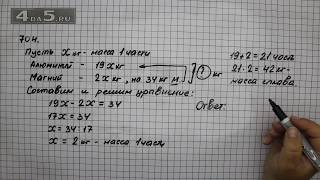 4DA5.RU
704.
Пусть x кг - масса 1 части
Алюминий - 19x кг
Магний - 2x кг, на 34 кг м
? кг
Составим и решим уравнение:
19x - 2x = 34
17x = 34
x = 34 : 17
x = 2 кг - масса 1 части
19 + 2 = 21 часть
21 · 2 = 42 кг -
масса сплава.
Ответ: